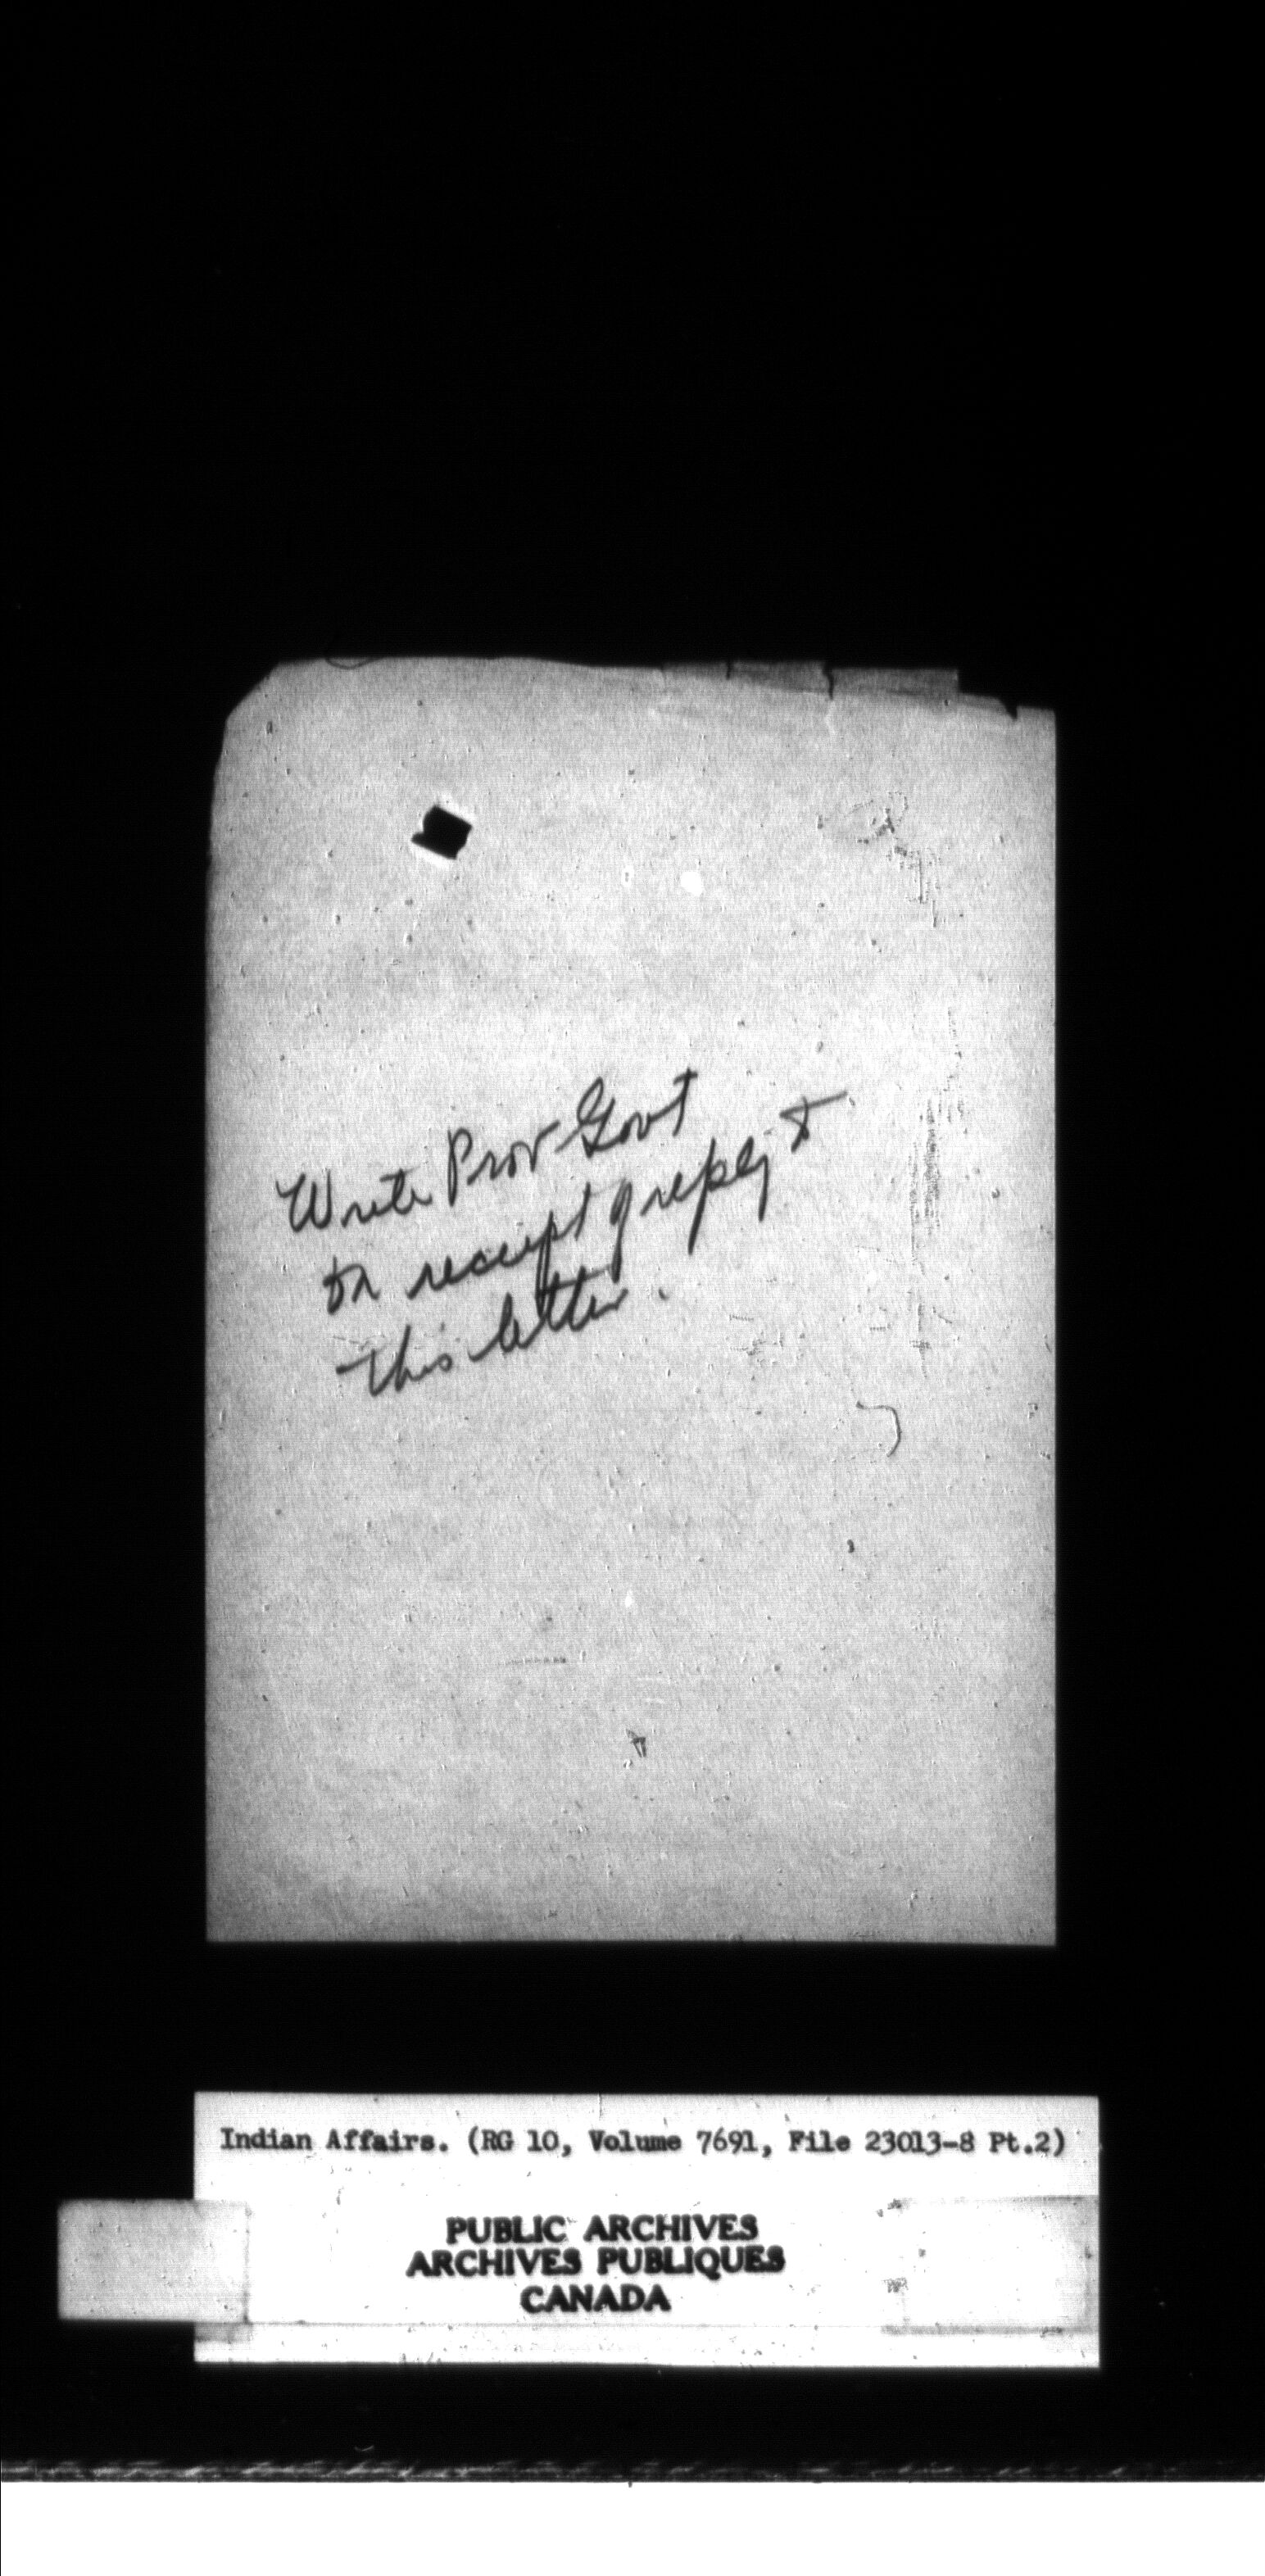 Write Prov Govt
on receipt of reply to
this letter.
Indian Affairs. (RG 10, Volume 7691, File 23013-8 Pt.2)
PUBLIC ARCHIVES
ARCHIVES PUBLIQUES
CANADA